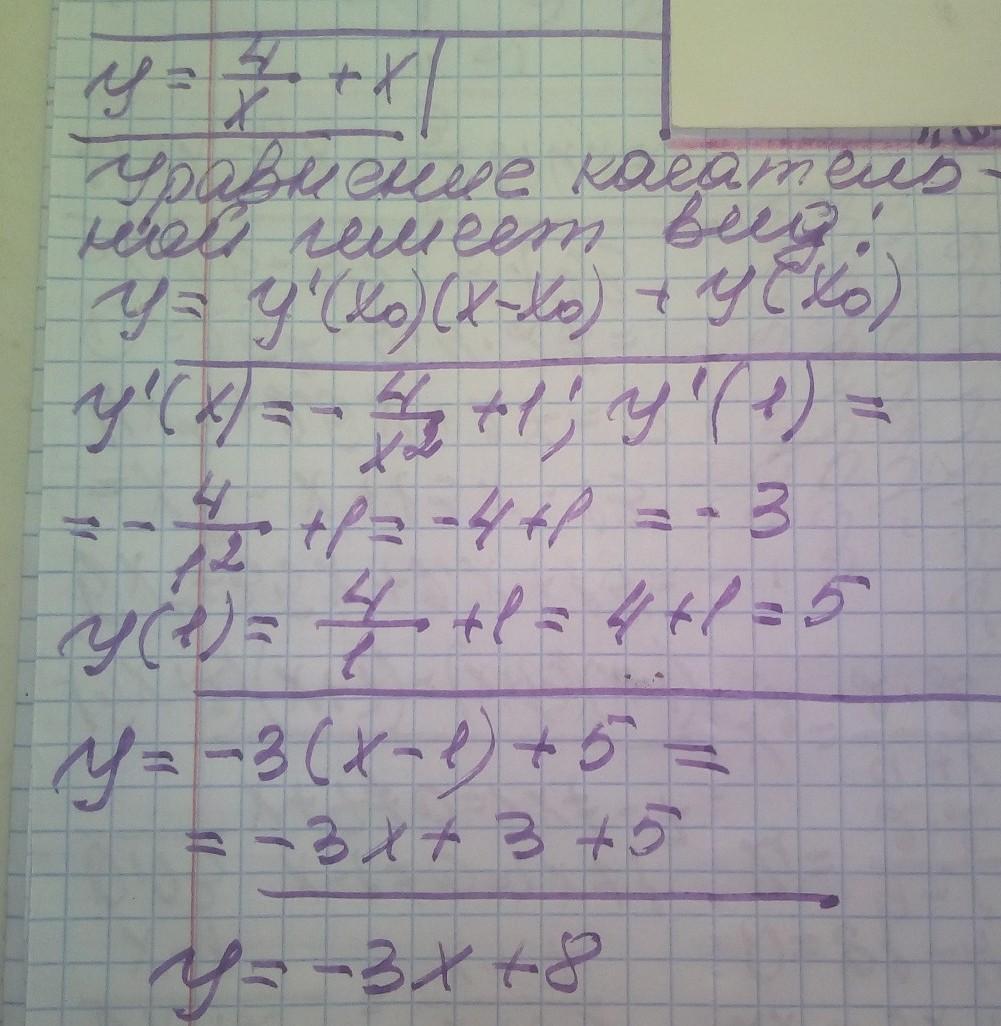 y = 4/x + x
Уравнение касатель-
ной имеет вид:
y = y'(x₀)(x-x₀) + y(x₀)
y'(x) = - 4/x² + 1; y'(1) =
= - 4/1² + 1 = -4+1 = - 3
y(1) = 4/1 + 1 = 4+1 = 5
y = -3(x-1) + 5 =
= -3x + 3 + 5
y = -3x + 8